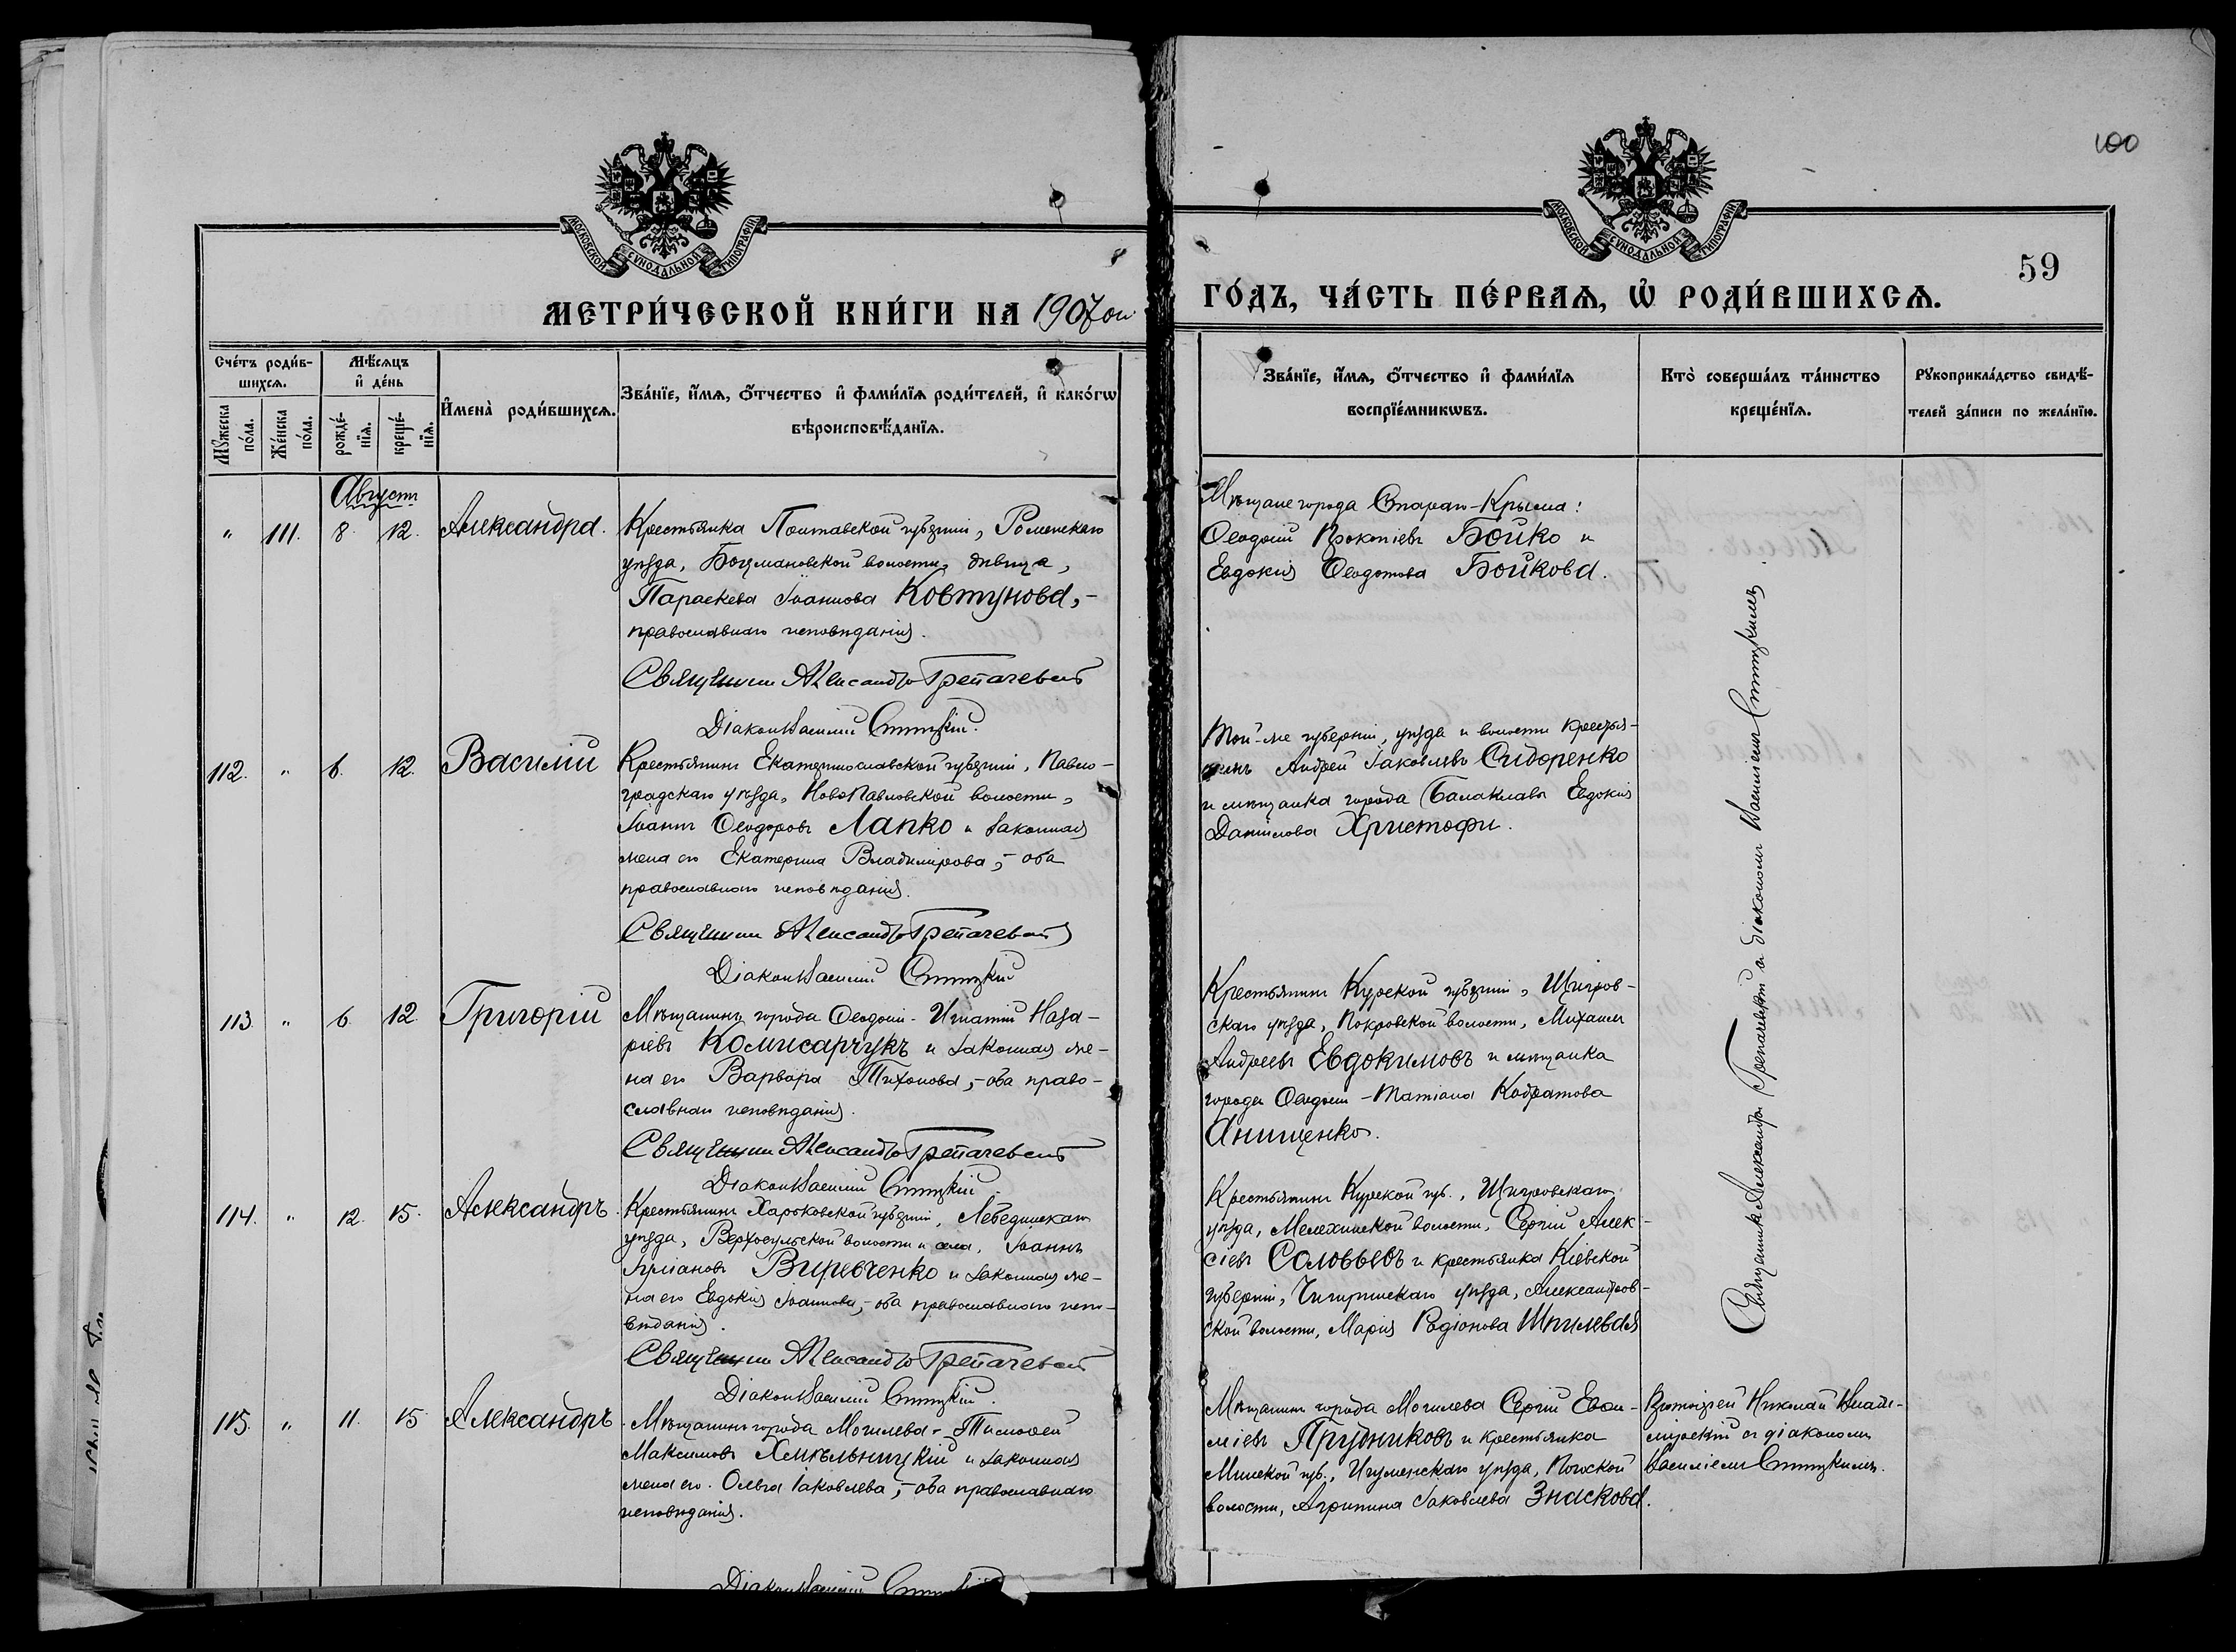 100
59
МОСКОВСКОЙ СѴНОДАЛЬНОЙ ТИПОГРАФІИ
МОСКОВСКОЙ СѴНОДАЛЬНОЙ ТИПОГРАФІИ
МЕТРИ́ЧЕСКОЙ КНИ́ГИ НА 1907ой
ГО́ДЪ, ЧА́СТЬ ПЕ́РВАѦ, Ѡ҆ РОДИ́ВШИХСѦ.
Сче́тъ роди́в-
шихсѧ.
Мꙋ́жеска
по́ла.
Же́нска
по́ла.
Мѣ́сѧцъ
и҆ де́нь
рожде́-
нїѧ.
креще́-
нїѧ.
И҆мена̀ роди́вшихсѧ.
Зва́нїе, и҆́мѧ, ѻ҆́тчество и҆ фами́лїѧ роди́телей, и҆ како́гѡ
вѣроисповѣ́данїѧ.
Зва́нїе, и҆́мѧ, ѻ҆́тчество и҆ фами́лїѧ
воспрїе́мникѡвъ.
Кто̀ соверша́лъ та́инство
креще́нїѧ.
Рꙋкоприкла́дство свидѣ́-
телей за́писи по жела́нїю.
Августъ
" 111. 8. 12. Александра.
Крестьянка Полтавской губерніи, Роменскаго
уѣзда, Боцмановской волости, дѣвица,
Параскева Іоаннова Ковтунова,-
православнаго исповѣданія.
Священникъ Александръ
Діаконъ Василій
Мѣщане города Стараго-Крыма:
Ѳеодосій Прокопіевъ Бойко и
Евдокія Ѳеодотова Бойкова.
112. " 6. 12. Василій
Крестьянинъ Екатеринославской губерніи, Павло-
градскаго уѣзда, НовоПавловской волости,
Іоаннъ Ѳеодоровъ Лапко и законная
жена его Екатерина Владимірова,- оба
православнаго исповѣданія.
Священникъ Александръ
Діаконъ Василій
Той-же губерніи, уѣзда и волости крестья-
нинъ Андрей Іаковлевъ Сидоренко
и мѣщанка города Балаклавы Евдокія
Даніилова Христофи.
113. " 6. 12. Григорій
Мѣщанинъ города Ѳеодосіи - Игнатій Наза-
ріевъ Комисарчукъ и законная же-
на его Варвара Тихонова,- оба право-
славнаго исповѣданія.
Священникъ Александръ
Діаконъ Василій
Крестьянинъ Курской губерніи, Щигров-
скаго уѣзда, Покровской волости, Михаилъ
Андреевъ Евдокимовъ и мѣщанка
города Ѳеодосіи - Татіана Кодратова
Анищенко.
114. " 12. 15. Александръ.
Крестьянинъ Харьковской губерніи, Лебединскаго
уѣзда, Верхосульской волости и села, Іоаннъ
Виревченко и законная же-
на его Евдокія Іоаннова,- оба православнаго испо-
вѣданія.
Священникъ Александръ
Діаконъ Василій
Крестьянинъ Курской губ., Щигровскаго
уѣзда, Мелехинской волости, Сергій Алек-
сіевъ Соловьевъ и крестьянка Кіевской
губерніи, Чигиринскаго уѣзда, Александров-
ской волости, Марія Родіонова Шпилевая
Священникъ Александръ и діакономъ Василіемъ
115. " 11. 15 Александръ
Мѣщанинъ города Могилева - Тимоѳей
Максимовъ Хмѣльницкій и законная
жена его Ольга Іаковлева,- оба православнаго
исповѣданія.
Діаконъ Василій
Мѣщанинъ города Могилева Сергій Евѳи-
міевъ Прудниковъ и крестьянка
Минской губ., Игуменскаго уѣзда, Погоской
волости, Агрипина Іаковлева Знаскова.
Протоіерей Николай Влади-
мірскій съ діакономъ
Василіемъ